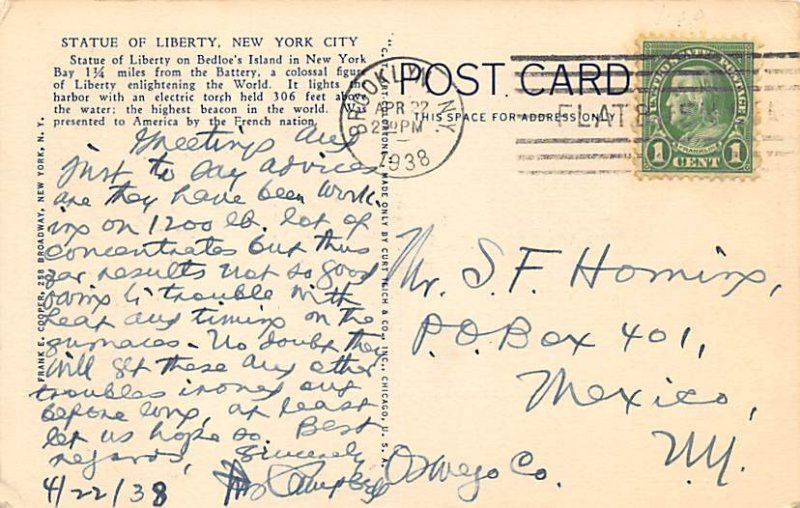 STATUE OF LIBERTY, NEW YORK CITY
Statue of Liberty on Bedloe's Island in New York
Bay 1¾ miles from the Battery, a colossal figure
of Liberty enlightening the World. It lights the
harbor with an electric torch held 306 feet above
the water; the highest beacon in the world. Was
presented to America by the French nation.
Greetings and
just to say advices
are they have been work-
ing on 1200 lb. lot of
concentrates but thus
far results not so good
owing to trouble with
heat and timing on the
furnaces - No doubt they
will get these and other
troubles ironed out
before long, at least
let us hope so. Best
regards, Sincerely
Campbell
4/22/38
FRANK E. COOPER, 258 BROADWAY, NEW YORK, N. Y.
MADE ONLY BY CURT TEICH & CO., INC., CHICAGO, U. S. A.
POST CARD
THIS SPACE FOR ADDRESS ONLY
BROOKLYN, N.Y.
APR 22
PM
1938
FLATBUSH STA
UNITED STATES POSTAGE
FRANKLIN
1 CENT 1
Mr. S. F. Homing,
P.O. Box 401,
Mexico,
Oswego Co. N.Y.